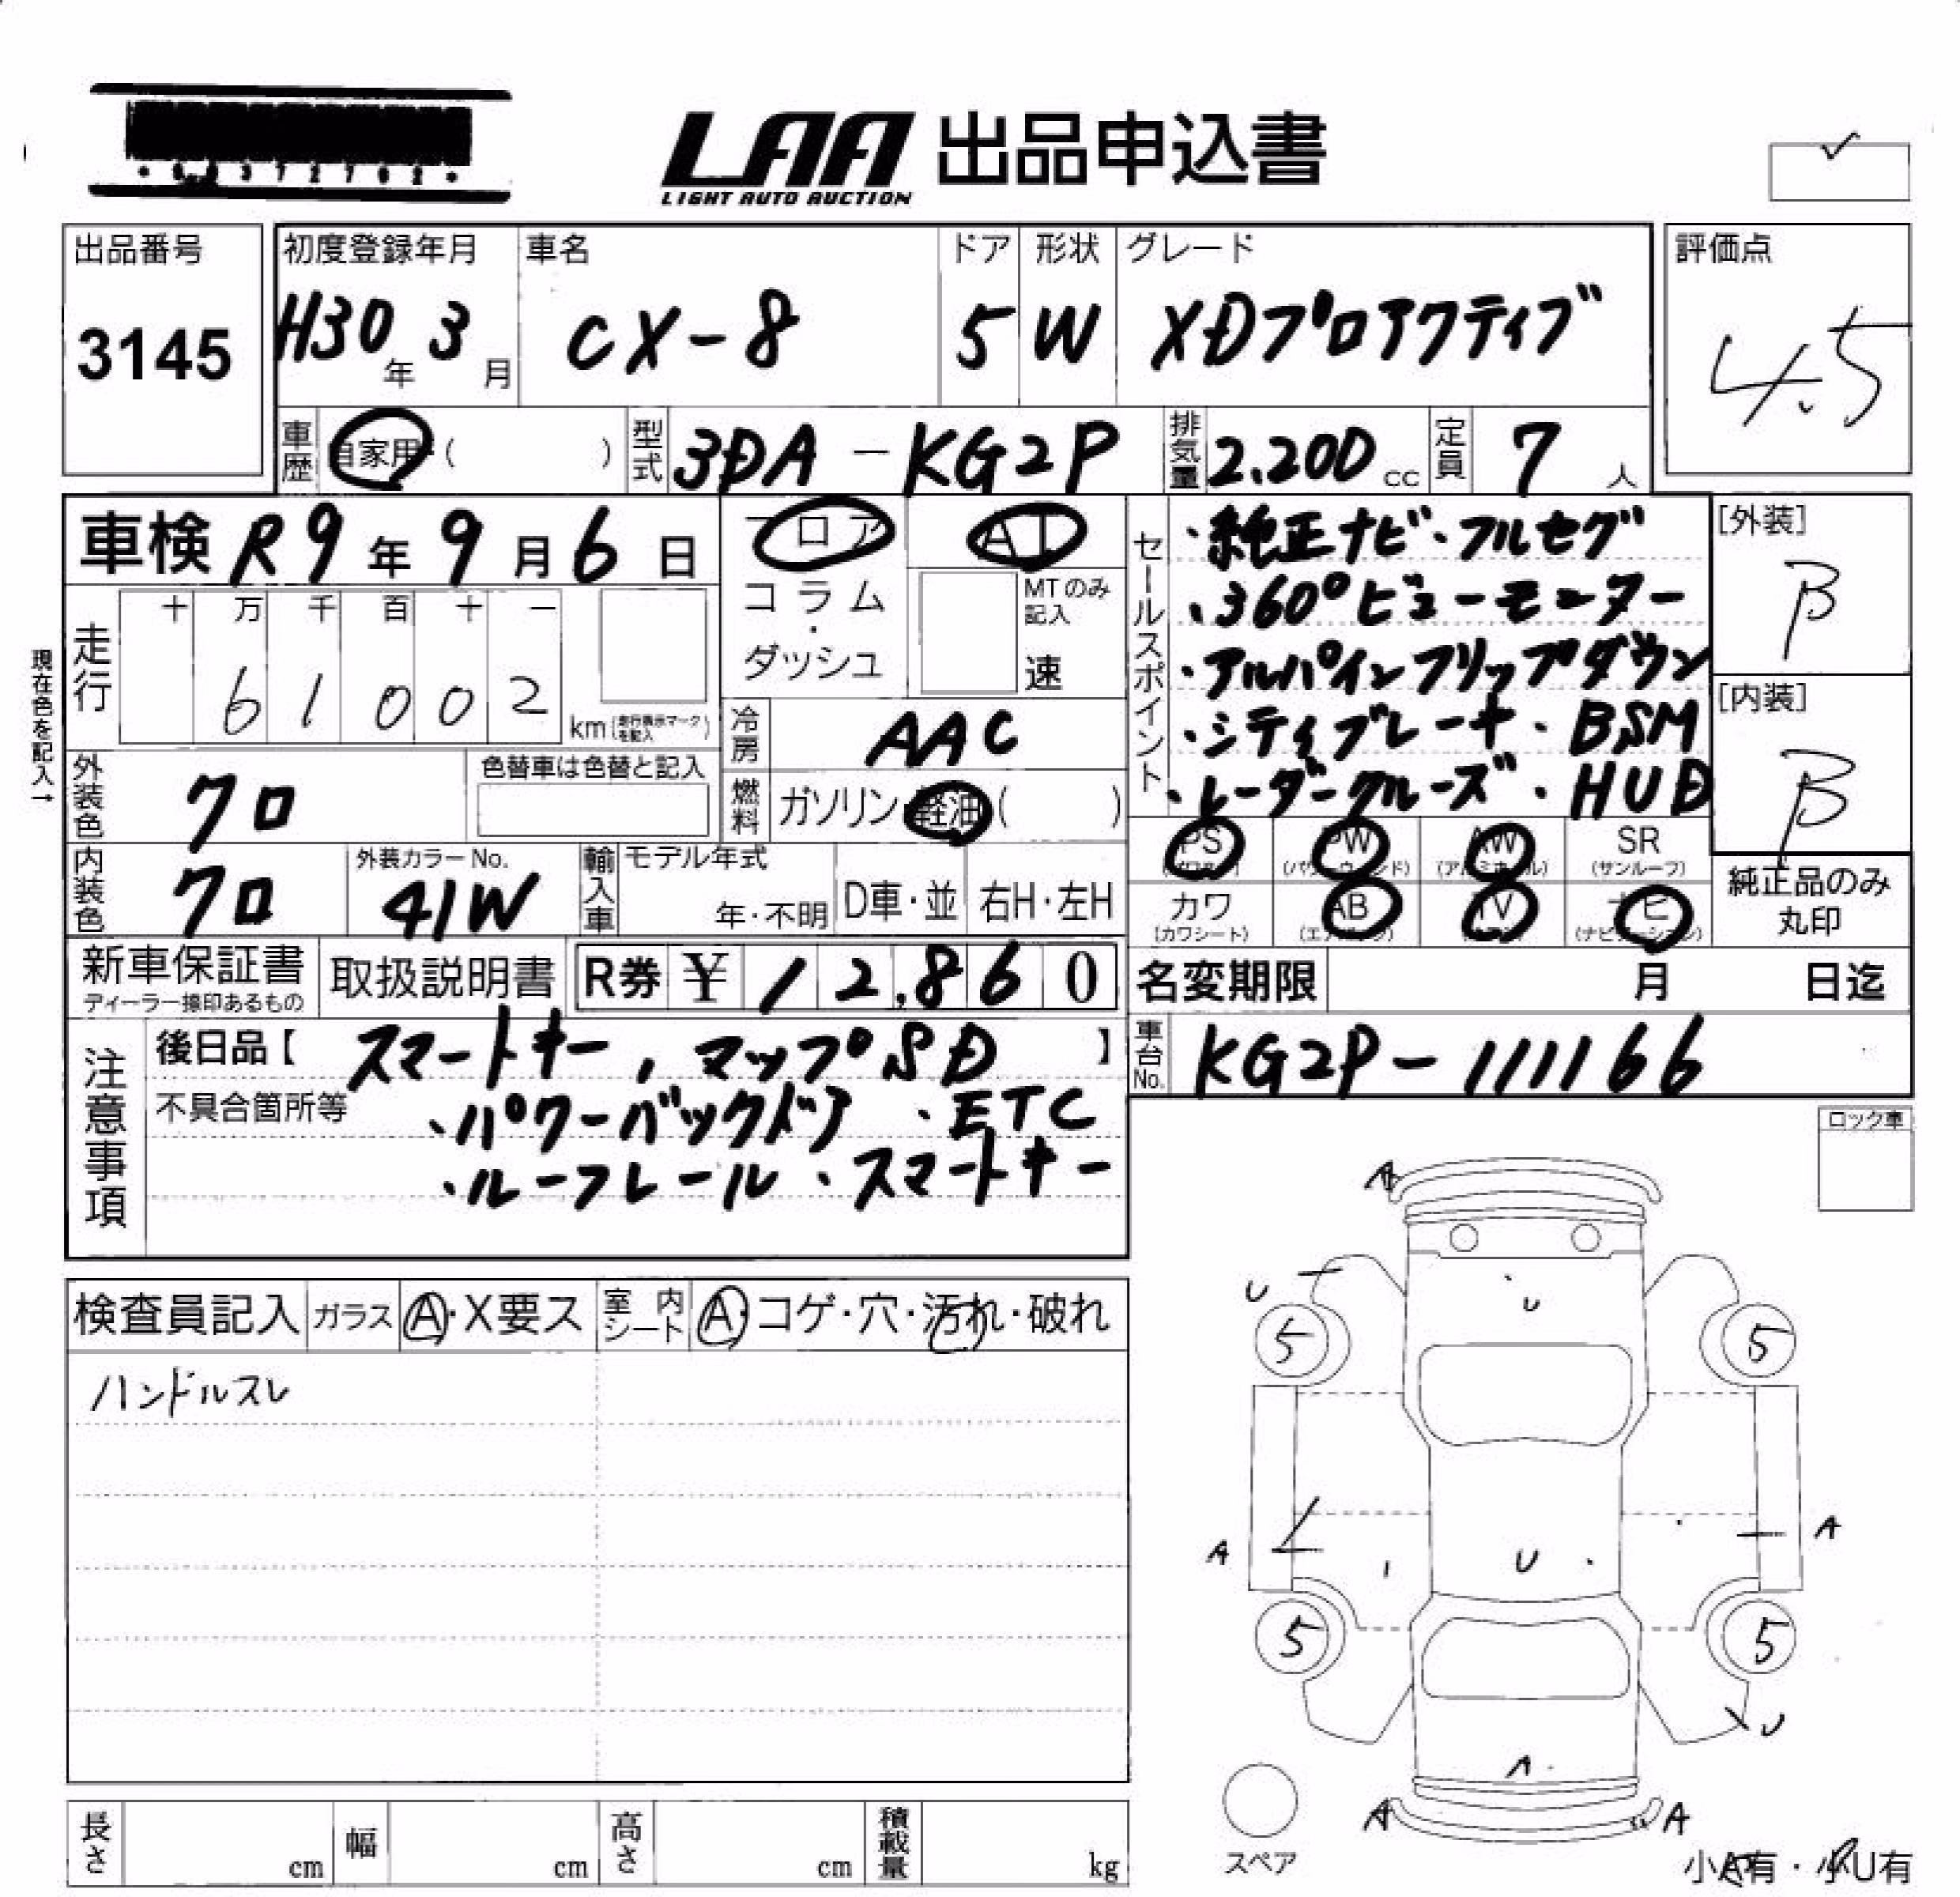 LAA 出品申込書
LIGHT AUTO AUCTION
出品番号
3145
初度登録年月
H30年 3月
車名
CX-8
ドア
5
形状
W
グレード
XDプロアクティブ
評価点
4.5
車歴 自家用・( )
型式 3DA-KG2P
排気量 2.200 cc
定員 7人
車検 R9年9月6日
フロア
コラム
・
ダッシュ
AT
MTのみ記入
速
セールスポイント
・純正ナビ・フルセグ
・360°ビューモニター
・アルパインフリップダウン
・シティブレーキ・BSM
・レーダークルーズ・HUD
[外装]
B
[内装]
B
現在色を記入→
走行
十 万 千 百 十 一
6 1 0 0 2
km(走行表示マークを記入)
冷房 AAC
燃料 ガソリン・軽油( )
外装色 クロ
色替車は色替と記入
内装色 クロ
外装カラーNo.
41W
輸入車
モデル年式
年・不明
D車・並
右H・左H
PS
PW
AW (アルミホイル)
SR (サンルーフ)
カワ (カワシート)
AB
TV
ナビ (ナビゲーション)
純正品のみ
丸印
新車保証書
ディーラー捺印あるもの
取扱説明書
R券 ¥12,860
名変期限 月 日迄
車台No. KG2P-111166
注意事項
後日品【スマートキー,マップSD】
不具合箇所等 ・パワーバックドア ・ETC
・ルーフレール ・スマートキー
ロック車
検査員記入
ガラス A・X要ス
室内シート A・コゲ・穴・汚れ・破れ
ハンドルスレ
A
U
U
5 5
A U A
5 5
U
A
A A
スペア
小A有・小U有
長さ cm
幅 cm
高さ cm
積載量 kg